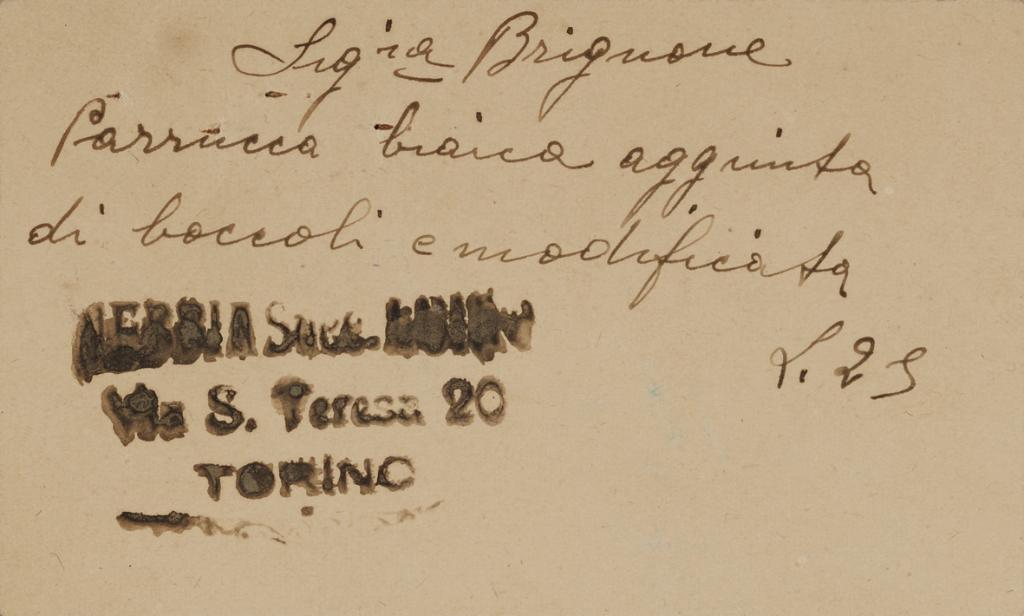 Sig.ra Brignone
Parrucca bianca aggiunta
di boccoli e modificata
L. 25
NEBBIA Succ.
Via S. Teresa 20
TORINO